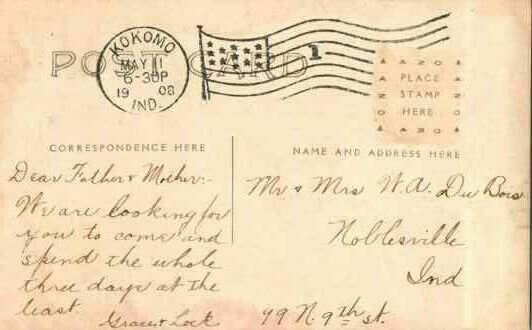 POST CARD
KOKOMO
MAY 11
6-30P
1908
IND.
1
AZO
PLACE
STAMP
HERE
AZO
CORRESPONDENCE HERE
NAME AND ADDRESS HERE
Dear Father & Mother:-
We are looking for
you to come and
spend the whole
three days at the
least.
Grace & Lock
Mr & Mrs W.A. Du Bois
Noblesville
Ind
99 N. 9th st.